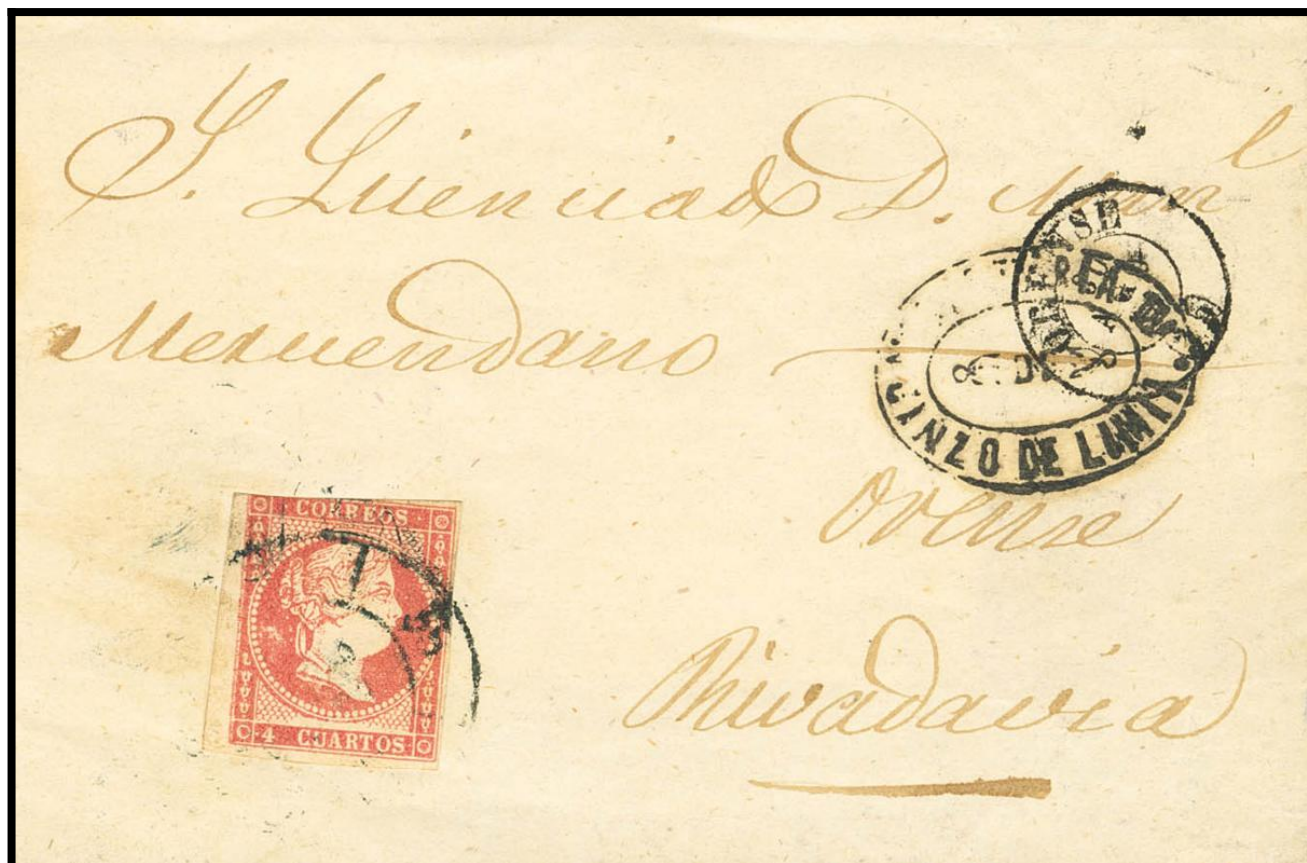 S. Licenciado D. Man^l
Meruendano
ORENSE
GINZO DE LIMIA.
Orense
Rivadavia
CORREOS
4 CUARTOS